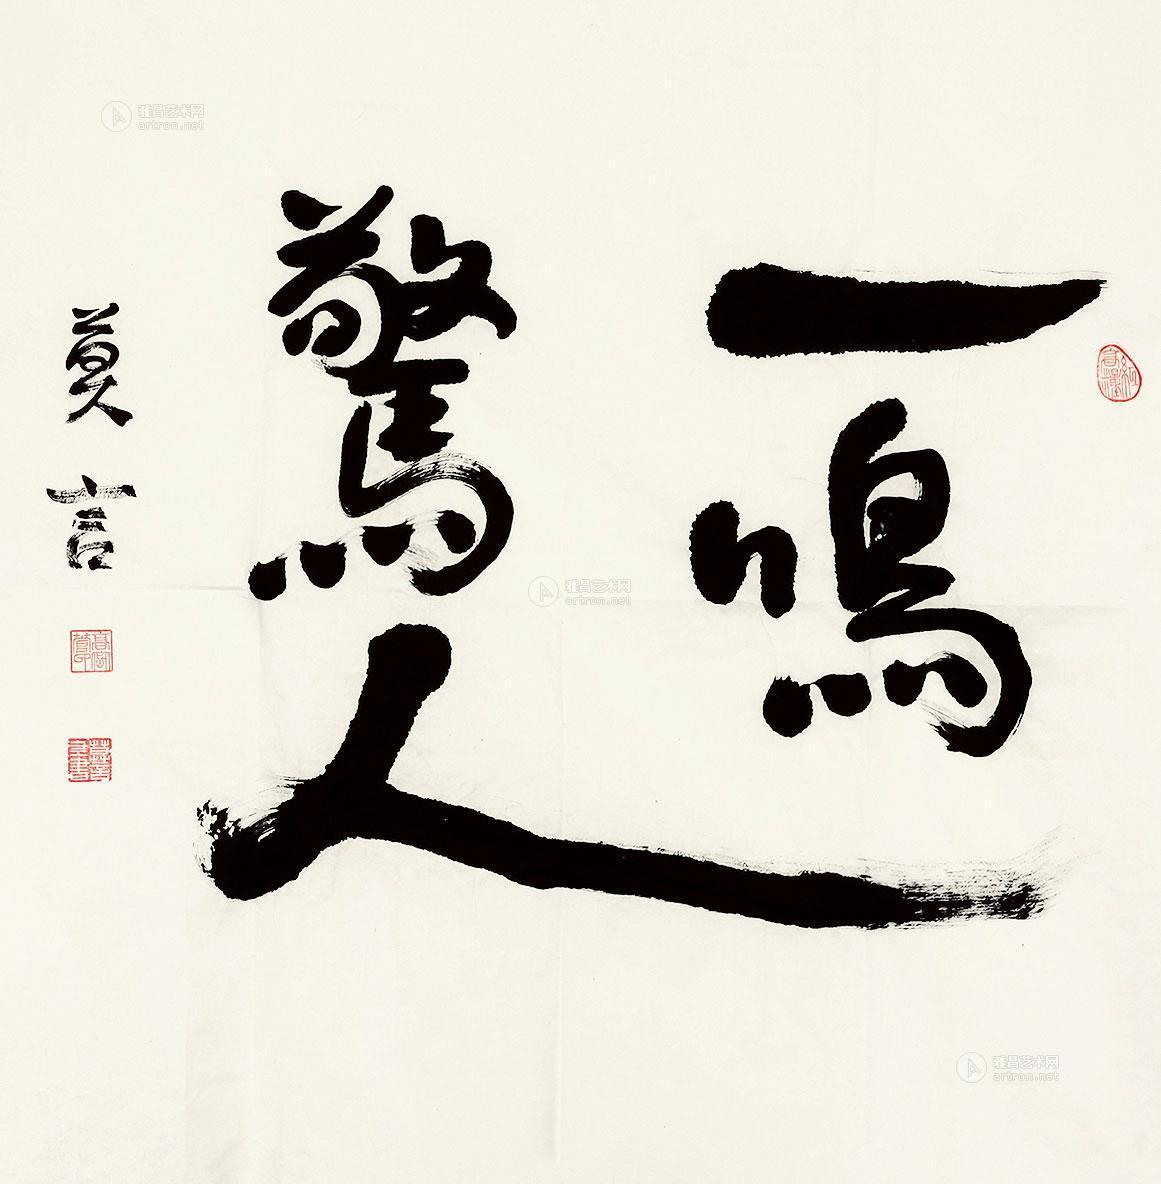 一鳴
驚人
莫言
雅昌艺术网
artron.net
雅昌艺术网
artron.net
雅昌艺术网
artron.net